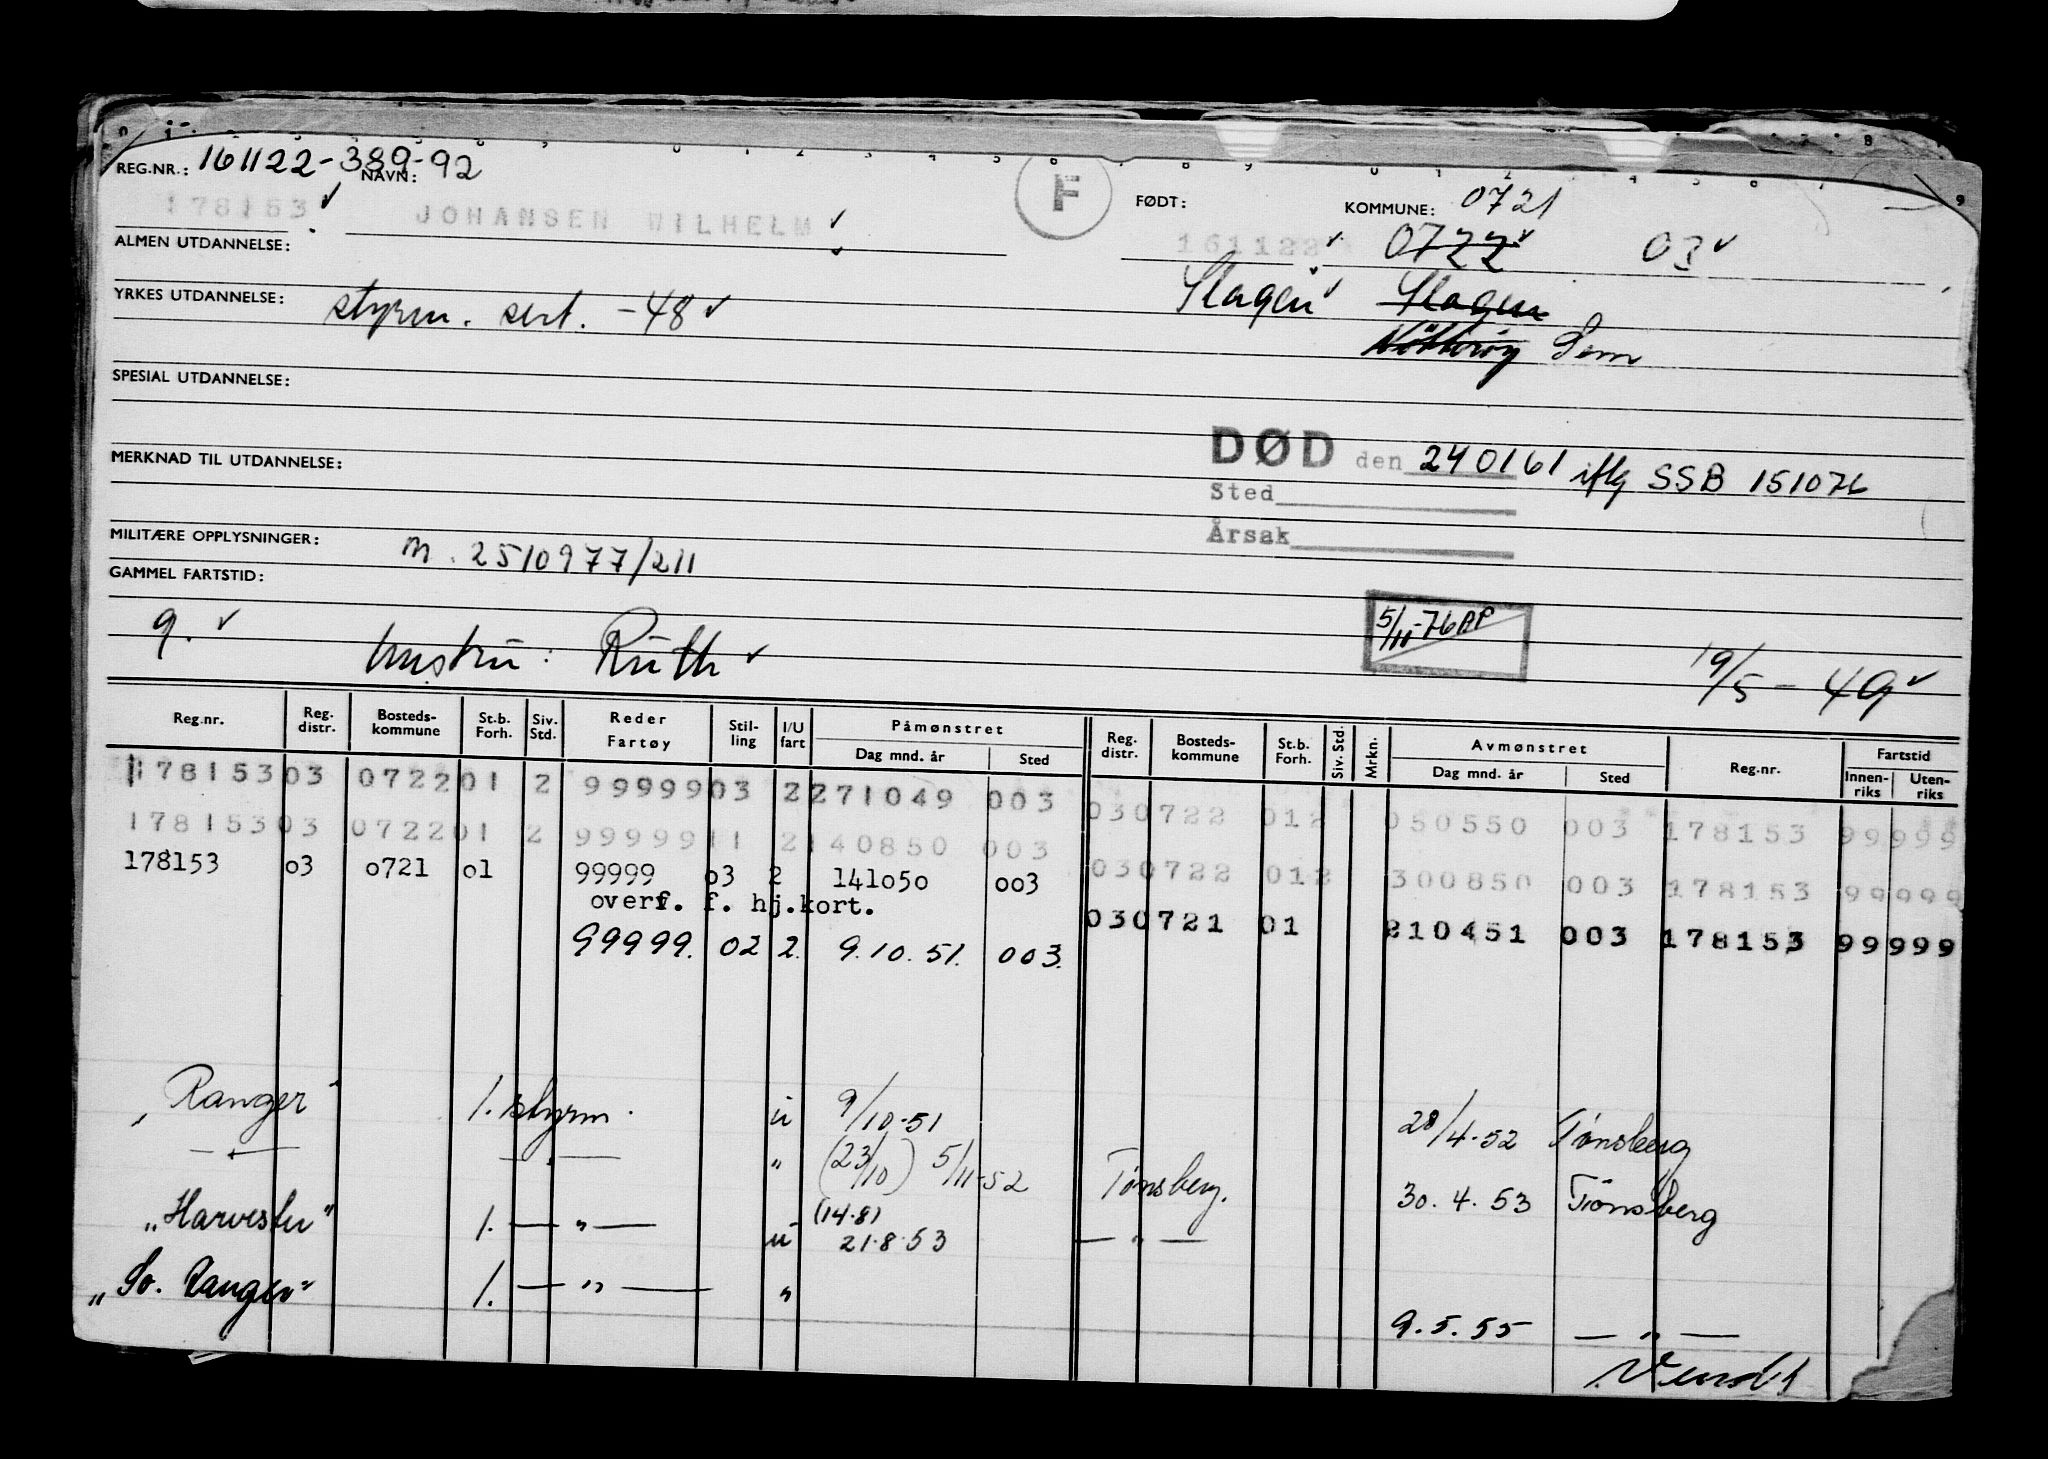 REG.NR.: 161122-389-92 NAVN: F FØDT: KOMMUNE: 0721
178153 JOHANSEN WILHELM 161122 0722 03
ALMEN UTDANNELSE: Slagen Slagen
YRKES UTDANNELSE: styrm. sert. -48 Nøtterøy Sem
SPESIAL UTDANNELSE:
DØD den 240161 iflg SSB 151076
MERKNAD TIL UTDANNELSE:
Sted
Årsak
MILITÆRE OPPLYSNINGER: m. 2510977/211
GAMMEL FARTSTID:
9. hustru: Ruth 5/11-76 AP 19/5-49
Reg.nr. Reg. distr. Bosteds-kommune St.b. Forh. Siv. Std. Reder Fartøy Stil-ling I/U fart Påmønstret Dag mnd. år Sted Reg. distr. Bosteds-kommune St.b. Forh. Siv. Std. Mrkn. Avmønstret Dag mnd. år Sted Reg.nr. Fartstid Innen-riks Uten-riks
178153 03 0722 01 2 99999 03 2 271049 003 03 0722 01 2 050550 003 178153 99999
178153 03 0722 01 2 99999 11 2 140850 003 03 0722 01 2 300850 003 178153 99999
178153 o3 o721 o1 99999 o3 2 141o5o oo3 03 0721 01 210451 003 178153 99999
overf. f. hj.kort.
99999. 02 2. 9.10.51. 003.
„Ranger" 1. styrm. u 9/10-51 28/4-52 Tønsberg
— " — — " — " (23/10) 5/11-52 Tønsberg. 30.4.53 Tønsberg
„Harvester" 1. — " — u (14.8) 21.8.53 — " —
„So. Ranger" 1. — " — " 9.5.55 — " —
Vend!